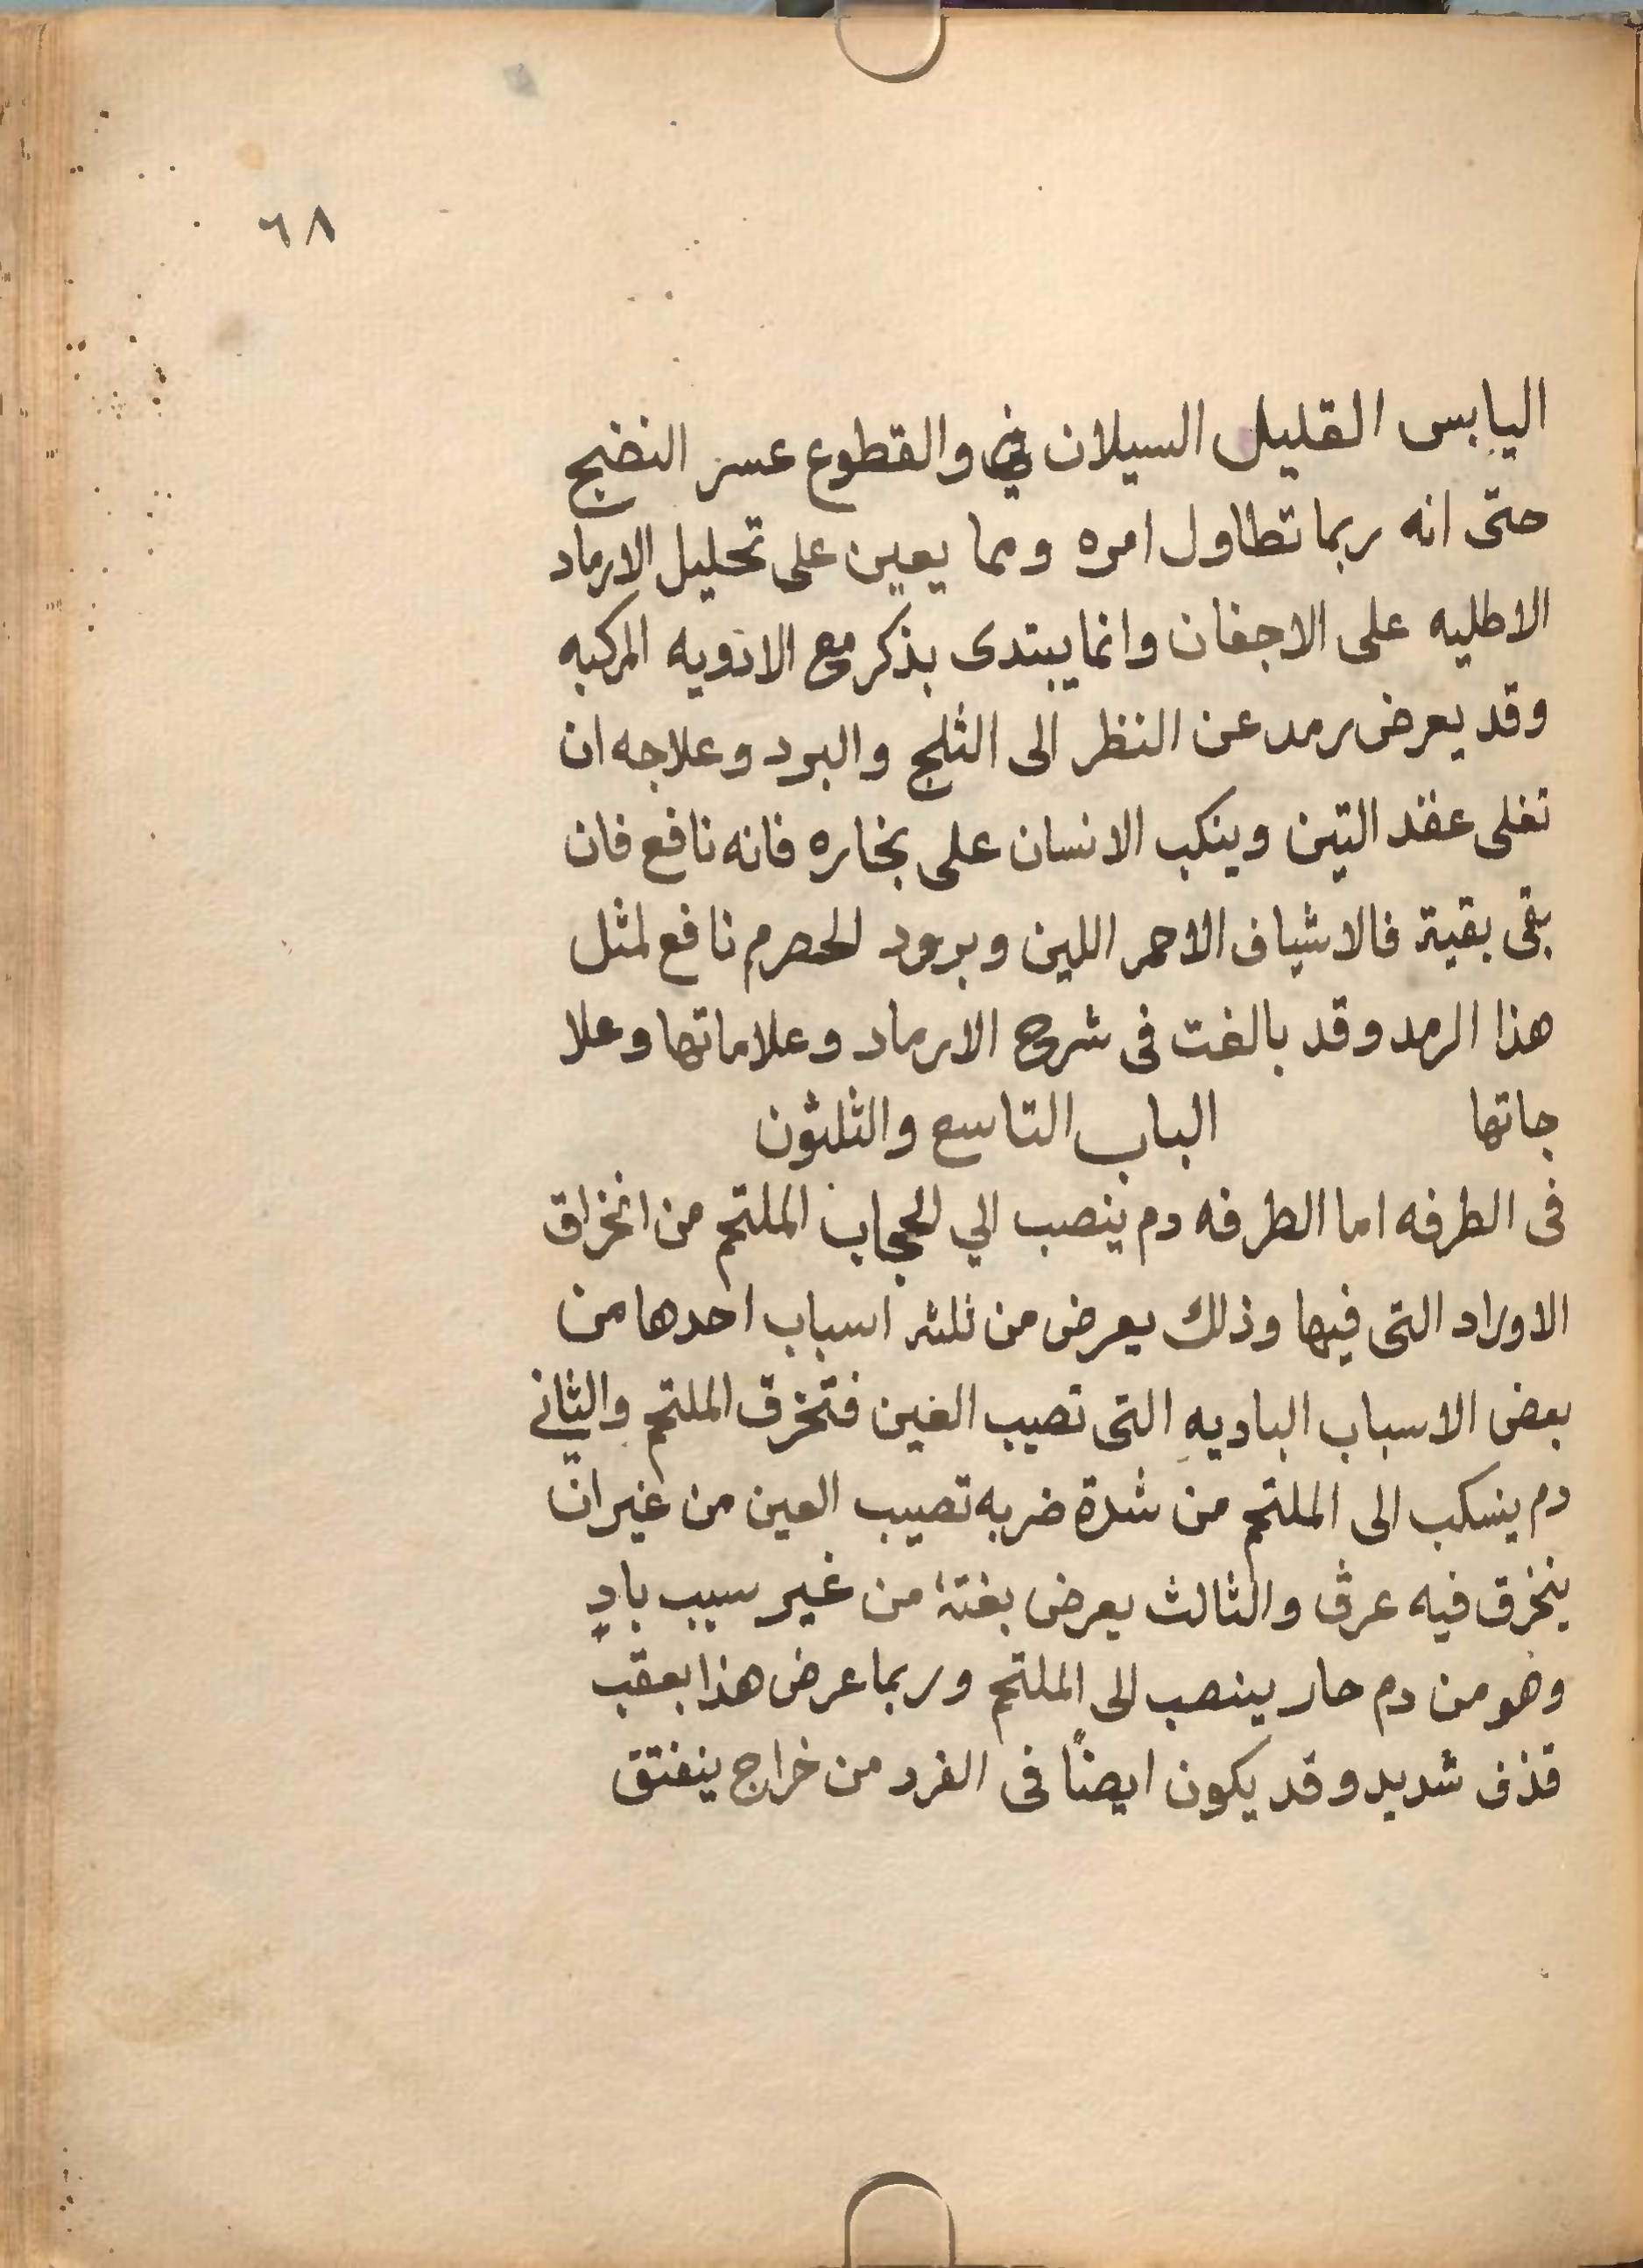 ٦٨
اليابس القليل السيلان في والقطوع عسر النضج
حتى انه ربما تطاول امره ومما يعين على تحليل الارماد
الاطليه على الاجفان وانما يبتدى بذكر مع الادويه المركبه
وقد يعرض رمد عن النظر الى الثلج والبرد وعلاجه ان
تغلى عقد التين وينكب الانسان على بخاره فانه نافع فان
بقى بقية فالاشياف الاحمر اللين وبرود الحصرم نافع لمثل
هذا الرمد وقد بالغت فى شرح الارماد وعلاماتها وعلا
جاتها الباب التاسع والثلثون
فى الطرفه اما الطرفه دم ينصب الي الحجاب الملتحم من انخراق
الاوراد التى فيها وذلك يعرض من ثلثه اسباب احدها من
بعض الاسباب الباديهِ التى تصيب الغين فتخرق الملتحم والثاني
دم ينسكب الى الملتحم من شدة ضربه تصيب العين من غير انّ
ينخرق فيه عرق والثالث يعرض بغتهً من غير سبب بادٍ
وهو من دم حار ينصب الى الملتحم وربما عرض هذا بعقب
قذف شديد وقد يكون ايضًا فى الفرد من خراج ينفتق